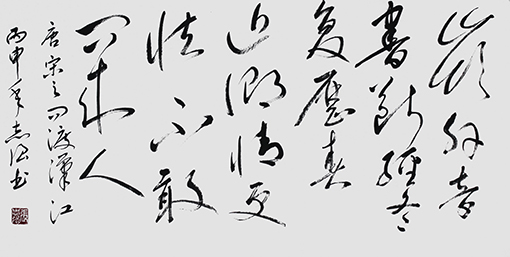 嶺外音
書斷經冬
复歷春
近鄉情更
怯不敢
问来人
唐宋之问渡漢江
丙申年志书